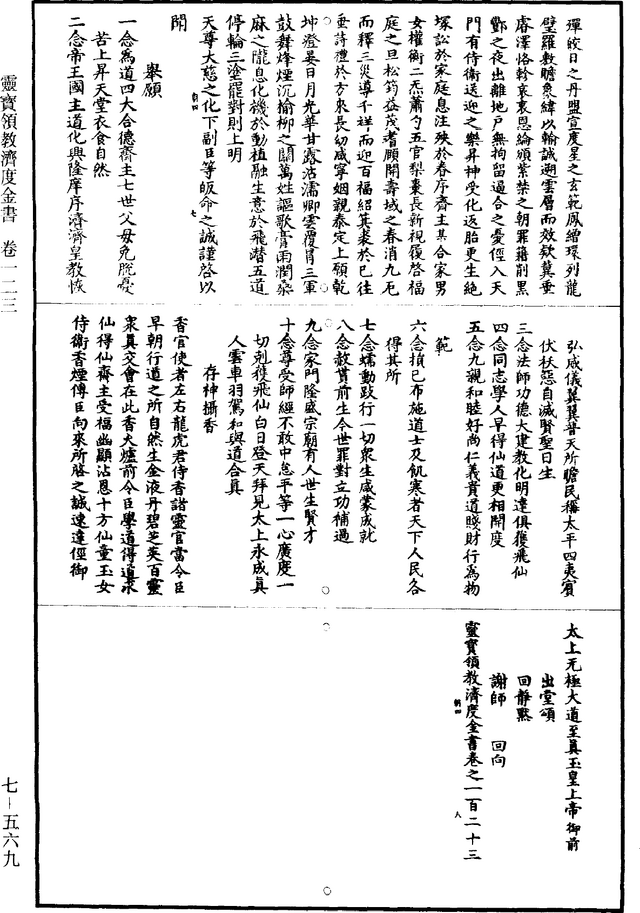 殫皎日之丹盟宣度星之玄範鳳繒環列龍
璧羅敷瞻象緯以輸誠遡雲層而效欵冀垂
睿澤恪軫哀衷恩綸頒紫禁之朝罪籍削黑
酆之夜出離地戶無拘留逼合之憂徑入天
門有侍衞送迎之樂昇神受化返胎更生絶
塚訟於家庭息注殃於眷序齋主某合家男
女權衡二炁蕭勺五官梨棗長新視履啓福
庭之旦松筠益茂耆頤開壽域之春消九厄
而釋三災導千祥而迎百福紹箕裘於已往
垂詩禮於方來長幼咸寧姻親泰定上願乾
坤澄晏日月光華甘露沾濡卿雲覆冐三軍
鼓舞烽煙沉榆柳之關萬姓謳歌膏雨潤桑
麻之隴息化機於動植融生意於飛潛五道
停輪三塗罷對則上明
天尊大慈之化下副臣等皈命之誠謹啓以
聞
舉願
一念爲道四大合德齋主七世父母免脫憂
苦上昇天堂衣食自然
二念帝王國主道化興隆庠序濟濟皇教恢
弘咸儀翼翼普天所瞻民稱太平四夷賓
伏袄惡自滅賢聖日生
三念法師功德大建教化明達俱獲飛仙
四念同志學人早得仙道更相開度
五念九親和睦好尚仁義貴道賤財行爲物
範
六念損已布施道士及飢寒者天下人民各
得其所
七念蠕動跂行一切衆生咸蒙成就
八念赦貰前生今世罪對立功補過
九念家門隆盛宗廟有人世生賢才
十念尊受師經不敢中怠平等一心廣度一
切剋獲飛仙白日登天拜見太上永成眞
人雲車羽駕和與道合眞
存神攝香
香官使者左右龍虎君侍香諸靈官當令臣
早朝行道之所自然生金液丹碧芝英百靈
衆眞交會在此香火爐前令臣學道得道求
仙得仙齋主受福幽顯沾恩十方仙童玉女
侍衞香煙傳臣向來所啓之誠速達徑御
太上无極大道至眞玉皇上帝御前
出堂頌
回靜黙
謝師 回向
靈寶領教濟度金書卷之一百二十三
靈寶領教濟度金書 卷一二三
七–五六九